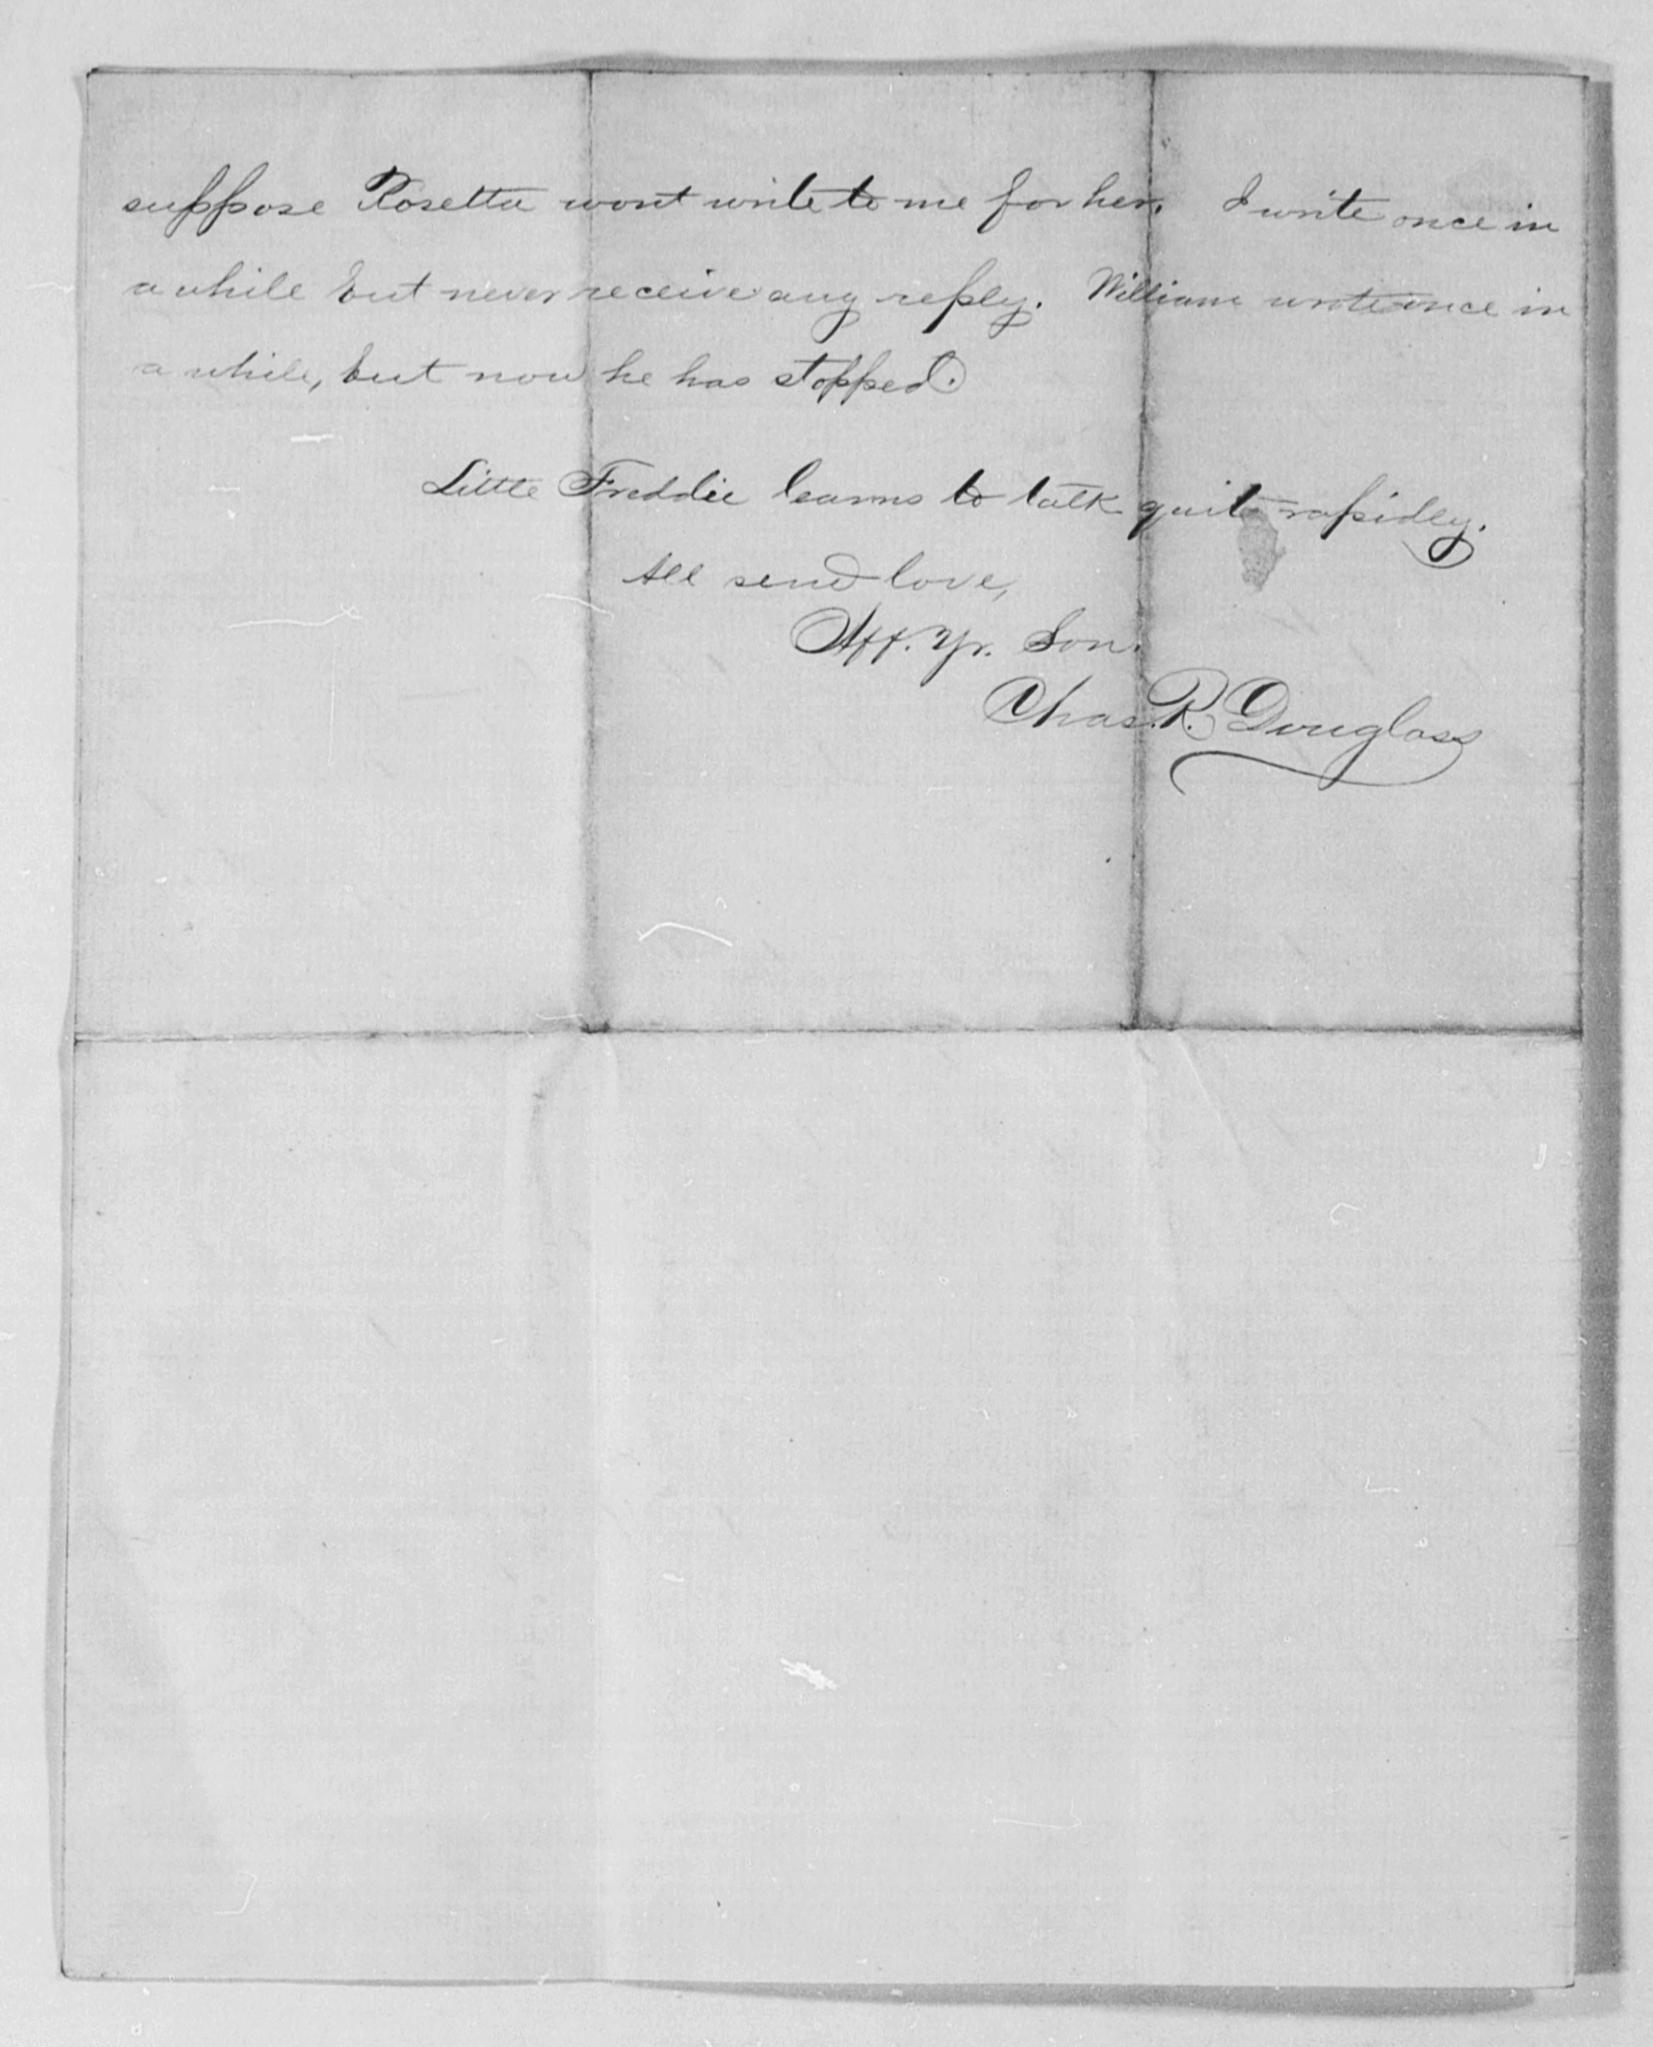 suppose Rosetta wont write to me for her. I write once in
a while but never receive any reply. William wrote once in
a while, but now he has stopped.
Little Freddie learns to talk quite rapidly.
All send love,
Aff. Yr. Son.
Chas. R. Douglass